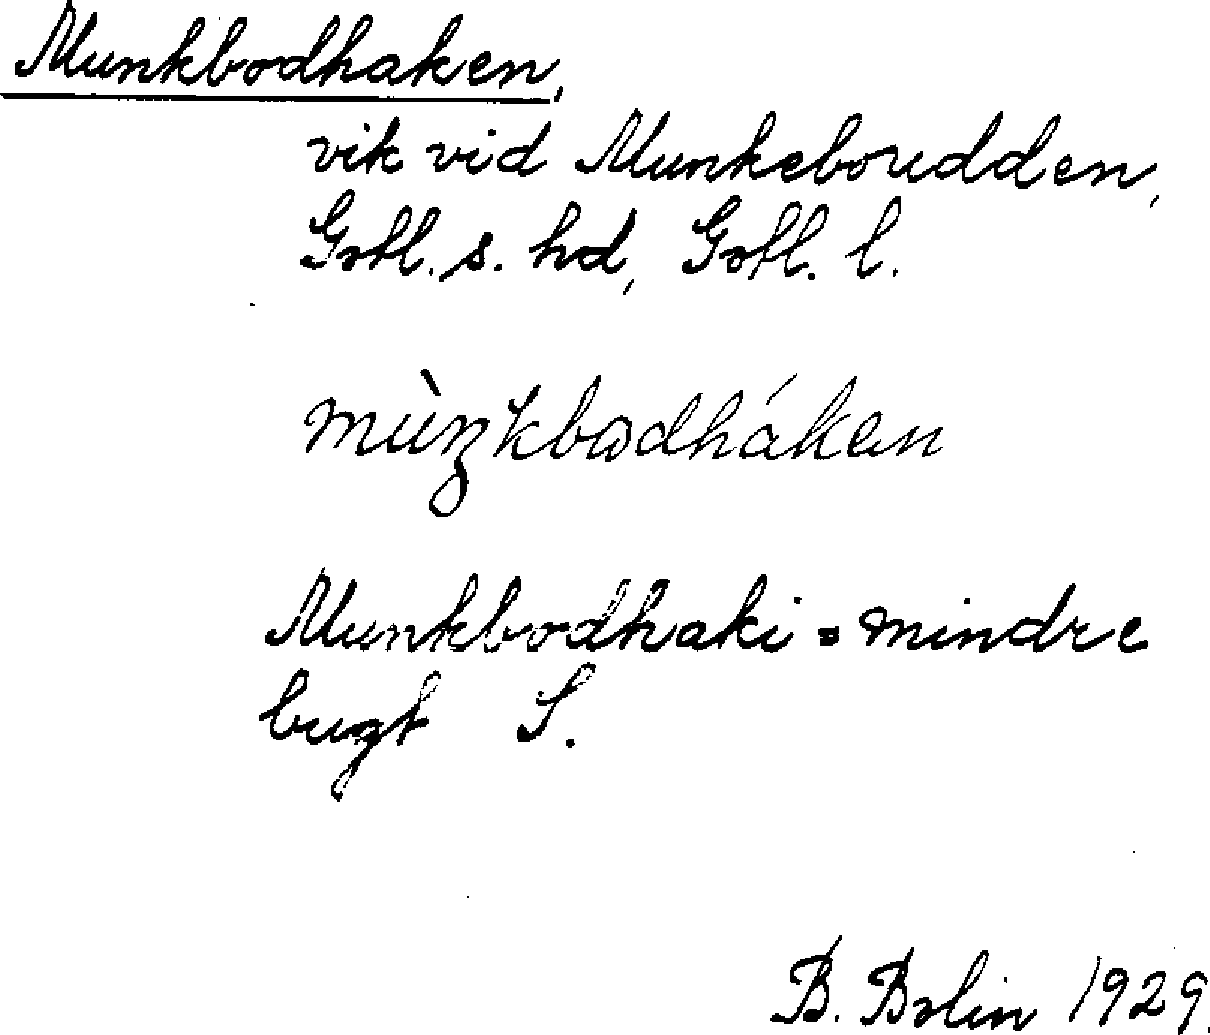 Munkbodhaken,
vik vid Munkeboudden,
Gotl. s. hd, Gotl. l.
mùŋkbωdháken
Munkbodhaki = mindre
bugt S.
B. Bolin 1929.